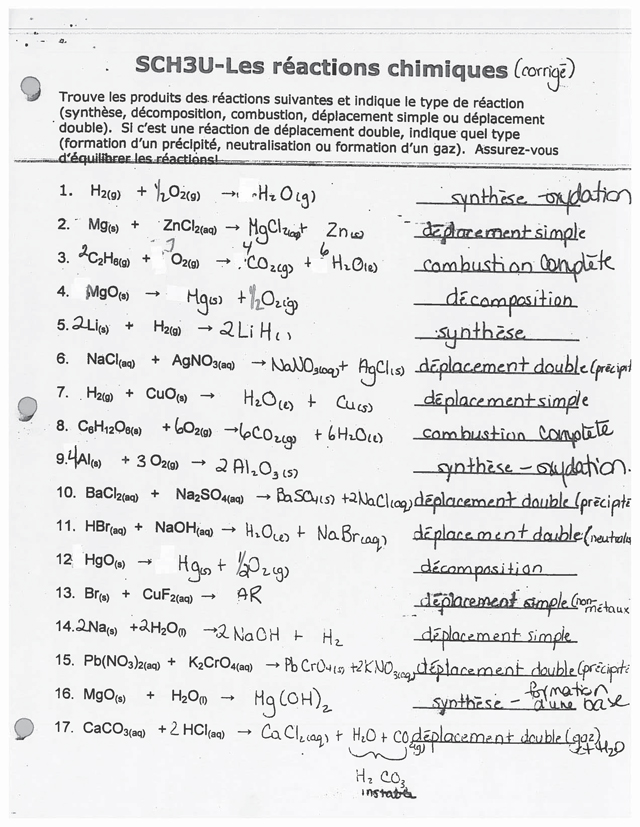 SCH3U-Les réactions chimiques (corrigé)
Trouve les produits des réactions suivantes et indique le type de réaction
(synthèse, décomposition, combustion, déplacement simple ou déplacement
double). Si c'est une réaction de déplacement double, indique quel type
(formation d'un précipité, neutralisation ou formation d'un gaz). Assurez-vous
d'équilibrer les réactions!
1. H2(g) + ½O2(g) → H2O(g) synthèse - oxydation
2. Mg(s) + ZnCl2(aq) → MgCl2(aq) + Zn(s) déplacement simple
3. 2C2H6(g) + 7O2(g) → 4CO2(g) + 6H2O(l) combustion complète
4. MgO(s) → Mg(s) + ½O2(g) décomposition
5. 2Li(s) + H2(g) → 2LiH( ) synthèse
6. NaCl(aq) + AgNO3(aq) → NaNO3(aq) + AgCl(s) déplacement double (précipit
7. H2(g) + CuO(s) → H2O(l) + Cu(s) déplacement simple
8. C6H12O6(s) + 6O2(g) → 6CO2(g) + 6H2O(l) combustion complète
9. 4Al(s) + 3O2(g) → 2Al2O3(s) synthèse - oxydation.
10. BaCl2(aq) + Na2SO4(aq) → BaSO4(s) + 2NaCl(aq) déplacement double (précipité
11. HBr(aq) + NaOH(aq) → H2O(l) + NaBr(aq) déplacement double (neutrali
12 HgO(s) → Hg(s) + ½O2(g) décomposition
13. Br(s) + CuF2(aq) → AR déplacement simple (non-métaux
14. 2Na(s) + 2H2O(l) → 2NaOH + H2 déplacement simple
15. Pb(NO3)2(aq) + K2CrO4(aq) → PbCrO4(s) + 2KNO3(aq) déplacement double (précipité
16. MgO(s) + H2O(l) → Mg(OH)2 synthèse - formation d'une base
17. CaCO3(aq) + 2HCl(aq) → CaCl2(aq) + H2O + CO2(g) déplacement double (gaz) + H2O
H2CO3
instable